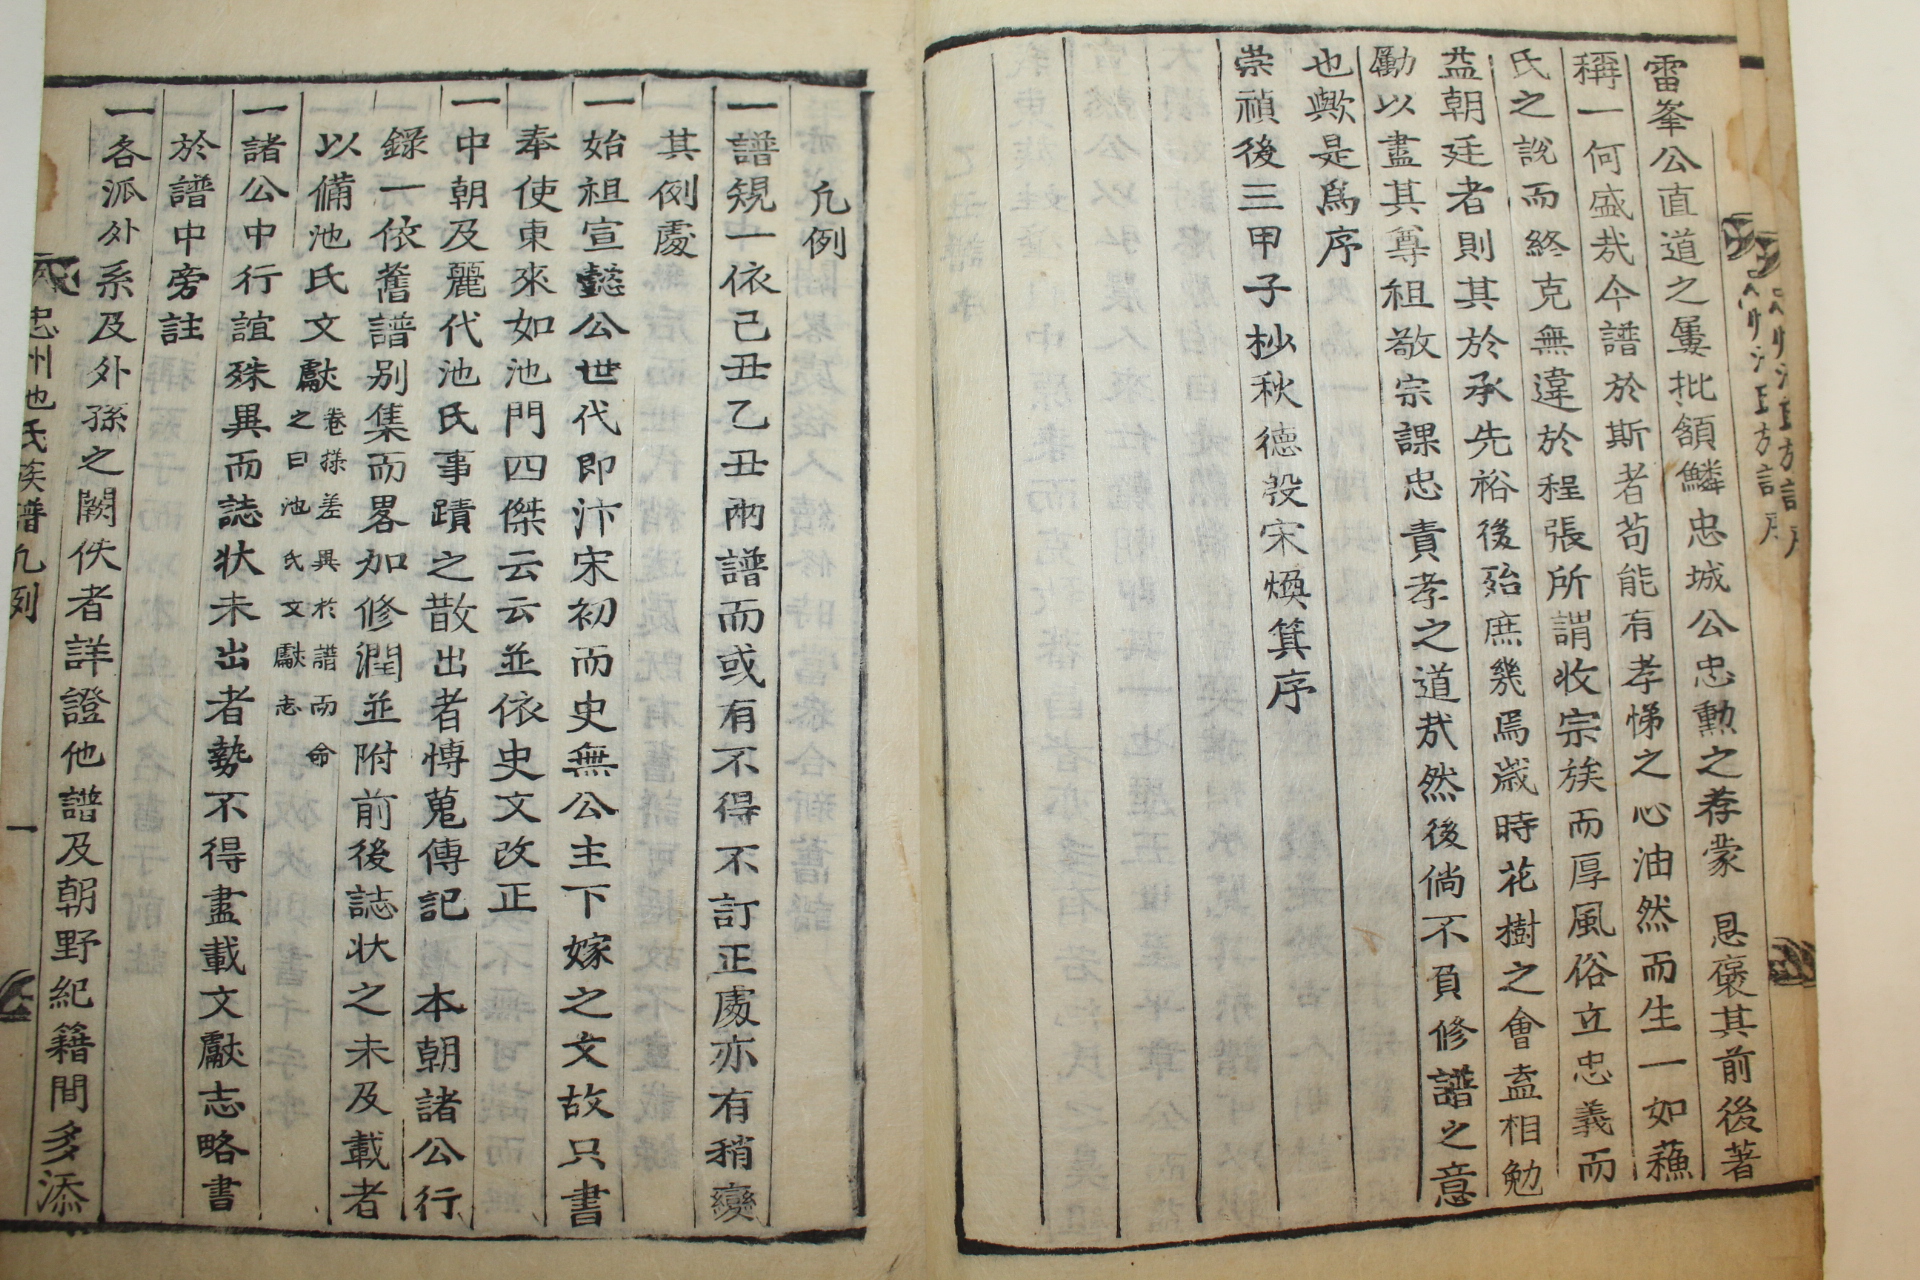 雷峯公直道之屢批頷鱗忠城公忠勳之荐蒙　恩褒其前後著
稱一何盛㦲今譜於斯者苟能有孝悌之心油然而生一如蘓
氏之說而終克無違於程張所謂收宗族而厚風俗立忠義而
益朝廷者則其於承先裕後殆庶幾焉歲時花樹之會盍相勉
勵以盡其尊祖敬宗課忠責孝之道㦲然後倘不負修譜之意
也歟是爲序
崇禎後三甲子杪秋德殷宋煥箕序
凡例
一譜規一依己丑乙丑兩譜而或有不得不訂正處亦有稍變
其例處
一始祖宣懿公世代即汴宋初而史無公主下嫁之文故只書
奉使東來如池門四傑云云並依史文改正
一中朝及麗代池氏事蹟之散出者愽蒐傳記　本朝諸公行
錄一依舊譜别集而畧加修潤並附前後誌状之未及載者
以備池氏文獻卷㨾差異於譜而命之曰池氏文獻志
一諸公中行誼殊異而誌状未出者勢不得盡載文獻志略書
於譜中旁註
一各派外系及外孫之闕佚者詳證他譜及朝野紀籍間多添
忠州池氏族譜凡例　一